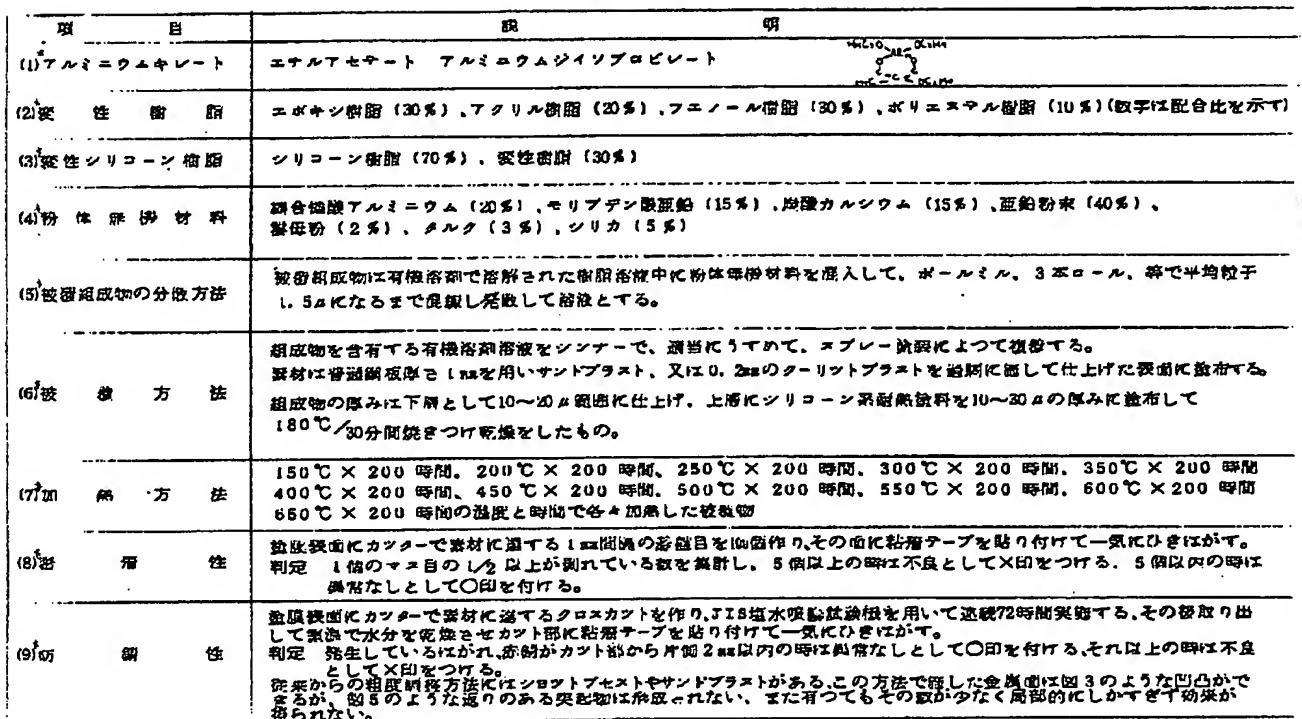 項目 説明
(1)*アルミニウムキレート エチルアセテート アルミニウムジイソプロピレート
(2)*変性樹脂 エポキシ樹脂 (30%)、アクリル樹脂 (20%)、フエノール樹脂 (30%)、ポリエステル樹脂 (10%)(数字は配合比を示す)
(3)*変性シリコーン樹脂 シリコーン樹脂 (70%)、変性樹脂 (30%)
(4)*粉体無機材料 縮合燐酸アルミニウム (20%)、モリブデン酸亜鉛 (15%)、炭酸カルシウム (15%)、亜鉛粉末 (40%)、
(2%)、タルク (3%)、シリカ (5%)
(5)*被覆組成物の分散方法 被覆組成物は有機溶剤で溶解された樹脂溶液中に粉体無機材料を混入して、ボールミル、3本ロール、等で平均粒子
1.5μになるまで混練し発散して溶液とする。
(6)*被覆方法 組成物を含有する有機溶剤溶液をシンナーで、適当にうすめて、スプレー塗装によつて被覆する。
素材は普通鋼板厚で1mmを用いサンドブラスト、又は0.2mmのグリットブラストを鋼に施して仕上げた表面に塗布する。
組成物の厚みは下層として10〜20μ範囲に仕上げ、上層にシリコーン系耐熱塗料を10〜30μの厚みに塗布して
180℃/30分間焼きつけ乾燥をしたもの。
(7)*加熱方法 150℃×200 時間、200℃×200 時間、250℃×200 時間、300℃×200 時間、350℃×200 時間
400℃×200 時間、450℃×200 時間、500℃×200 時間、550℃×200 時間、600℃×200 時間
650℃×200 時間の温度と時間で各々加熱した被覆物
(8)*密着性 塗膜表面にカッターで素材に達する1mm間隔の碁盤目を作り、その面に粘着テープを貼り付けて一気にひきはがす。
判定 1個のマス目の1/2以上が剥れている数を集計し、5個以上の時は不良として×印をつける、5個以内の時は
異常なしとして〇印を付ける。
(9)*防錆性 塗膜表面にカッターで素材に達するクロスカットを作り、JIS塩水噴霧試験機を用いて連続72時間実施する、その後取り出
して室温で水分を乾燥させカット部に粘着テープを貼り付けて一気にひきはがす。
判定 発生しているはがれ、赤錆がカット部から片側2mm以内の時は異常なしとして〇印を付ける、それ以上の時は不良
として×印をつける。
従来からの粗度調整方法にはショットブラストやサンドブラストがある、この方法で施した金属面は図3のような凹凸がで
きるが、図5のような返りのある突起物は形成されない、また有つてもその数が少なく局部的にしかすぎず効果が
得られない。